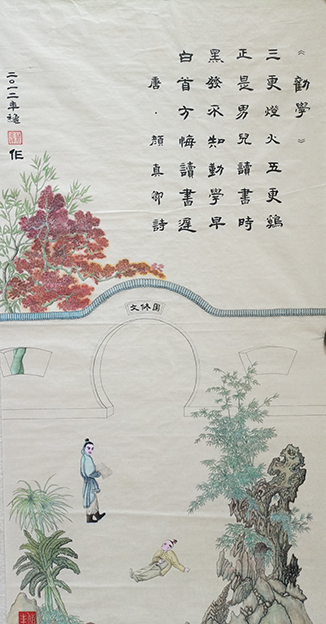 《勸學》
三更燈火五更鷄
正是男兒讀書時
黑發不知勤學早
白首方悔讀書遲
唐·顔真卿詩
二〇一二年
作